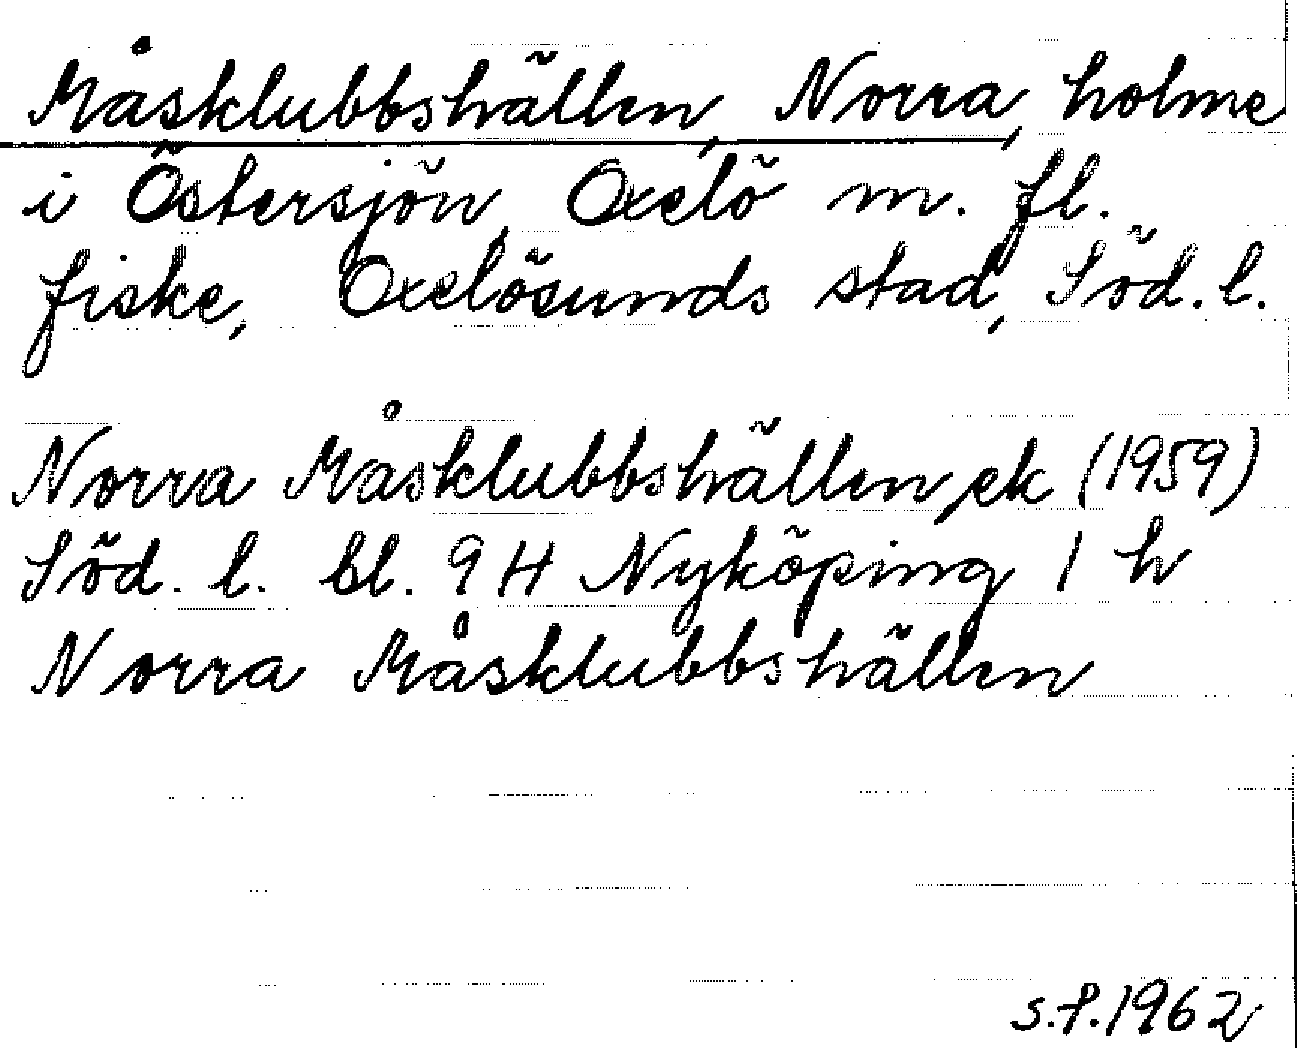 Måsklubbshällen, Norra, holme
i Östersjön, Oxelö m. fl.
fiske, Oxelösunds stad, Söd. l.
Norra Måsklubbshällen, ek (1959)
Söd. l. bl. 9 H Nyköping 1 h
Norra Måsklubbshällen
s.f. 1962